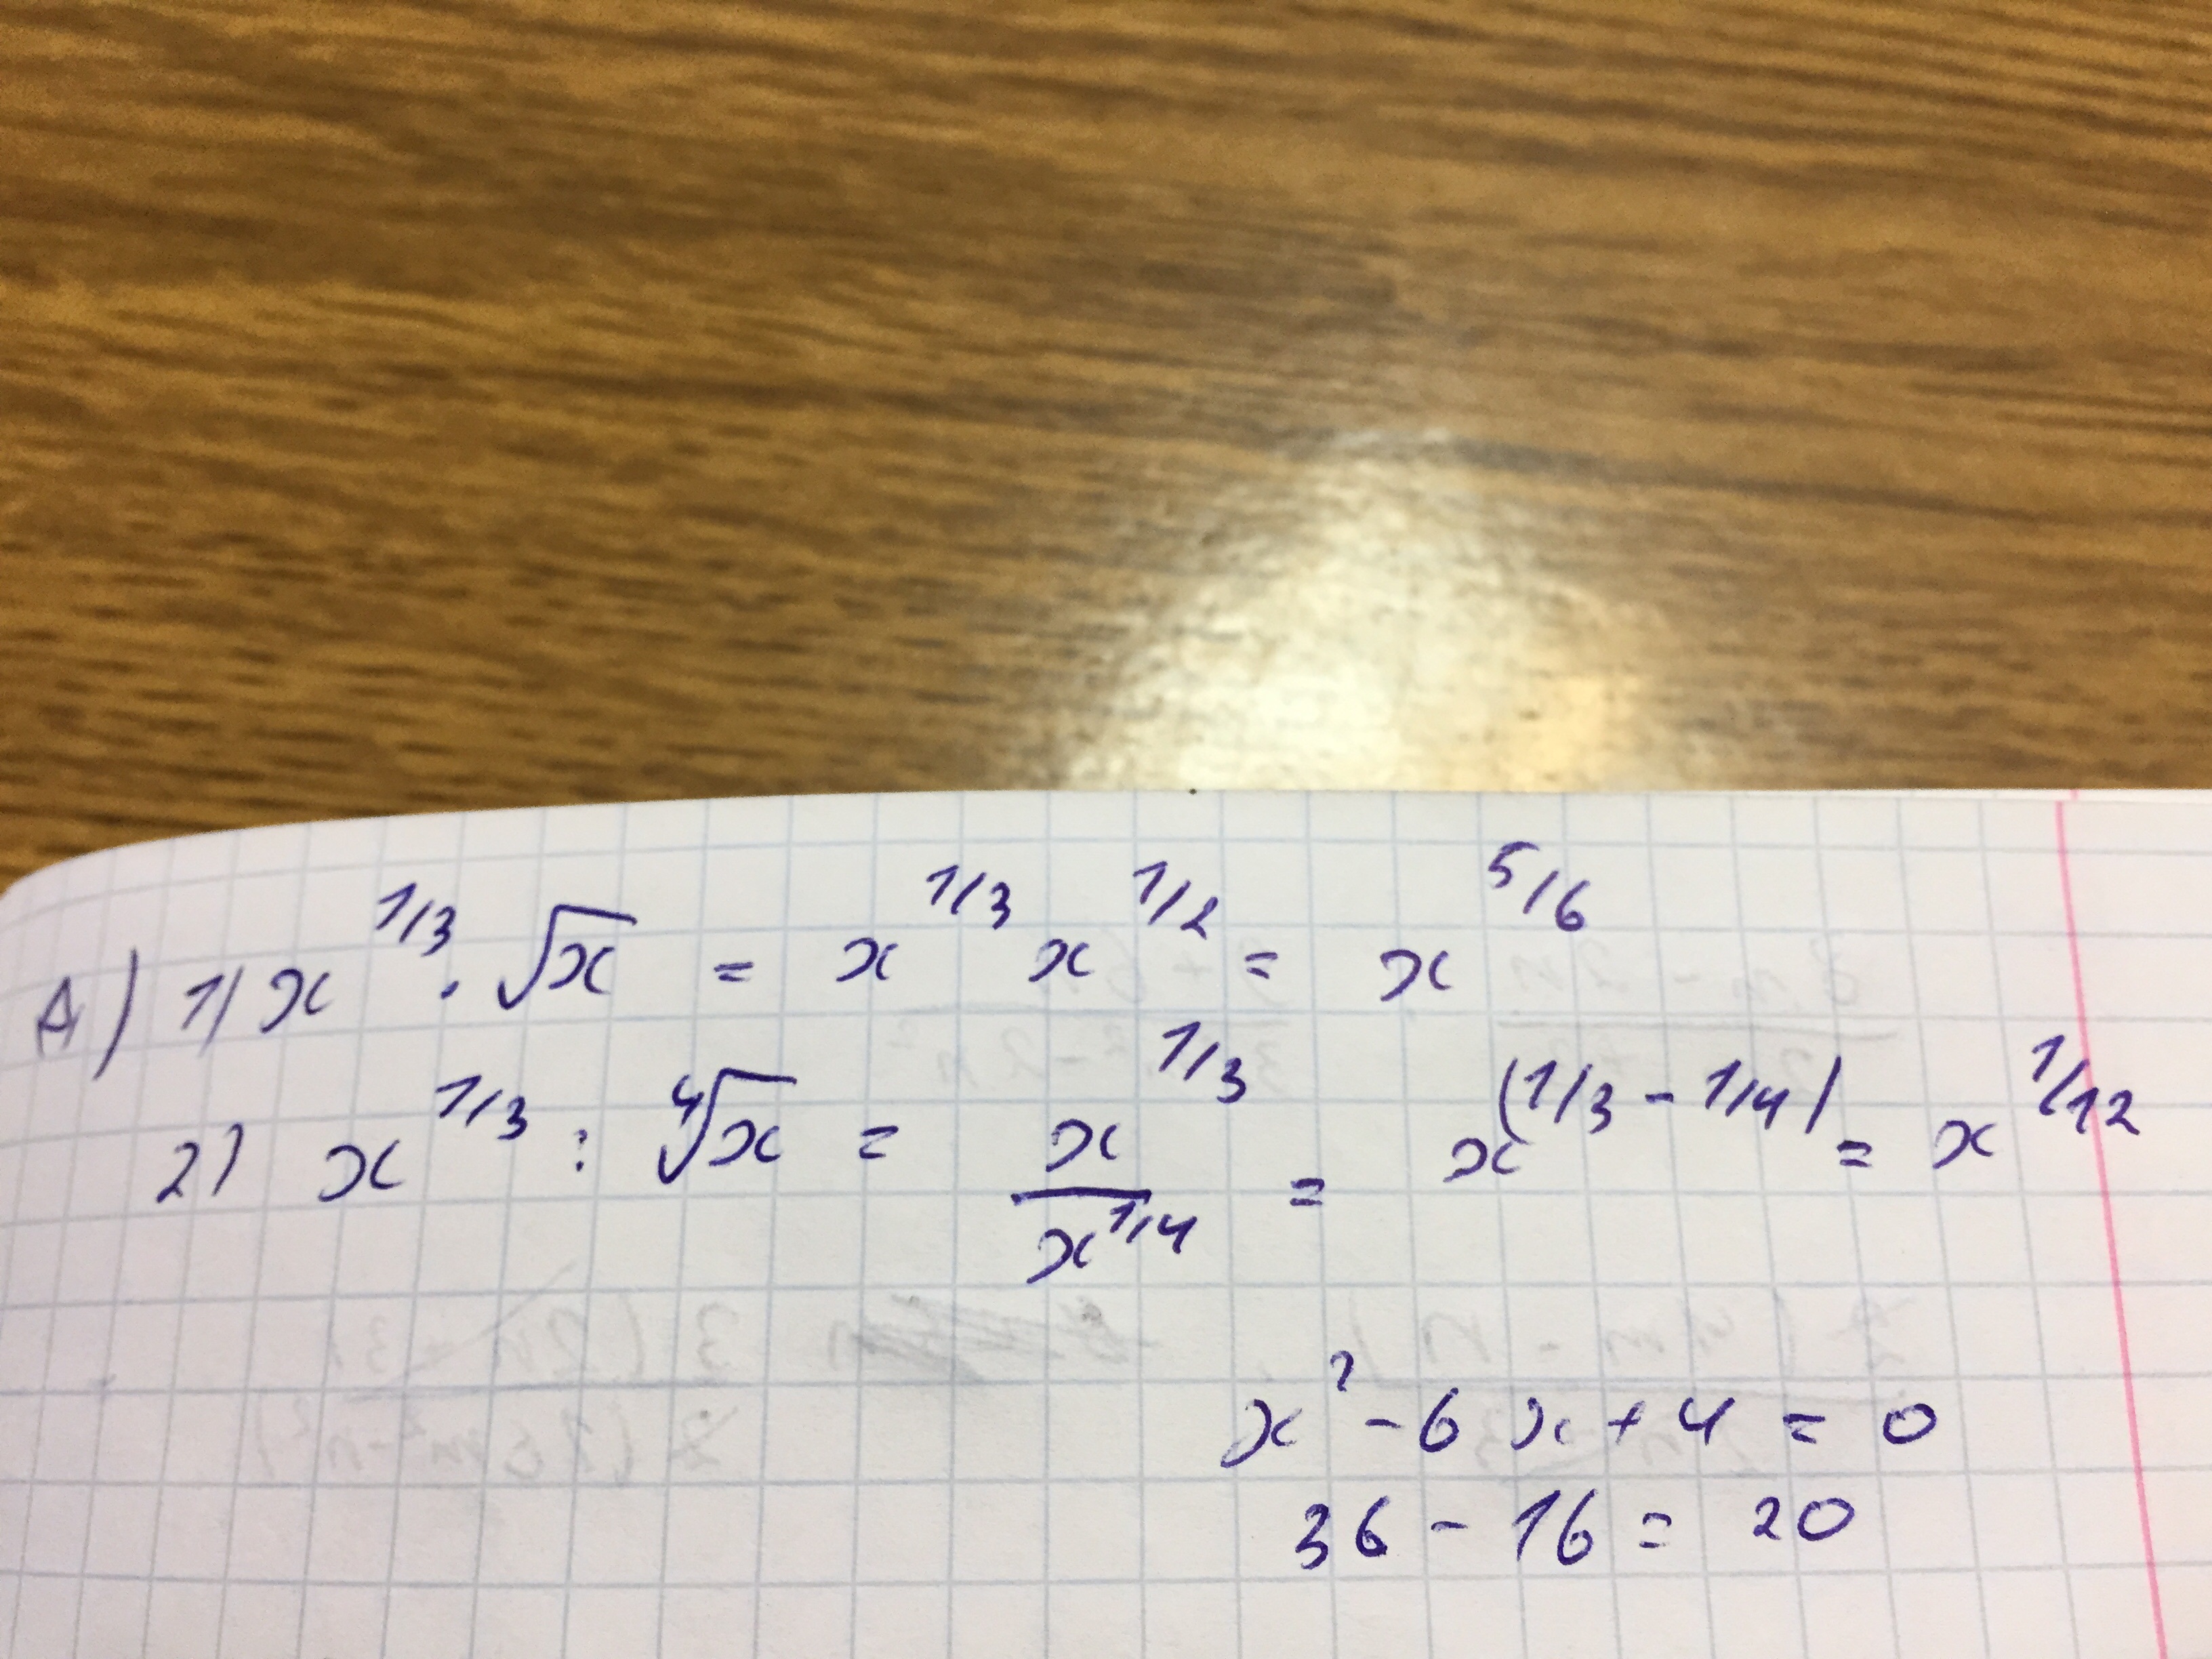 A) 1) x^1/3 · √x = x^1/3 x^1/2 = x^5/6
2) x^1/3 : ⁴√x = x^1/3 / x^1/4 = x^(1/3 - 1/4) = x^1/12
x² - 6x + 4 = 0
36 - 16 = 20